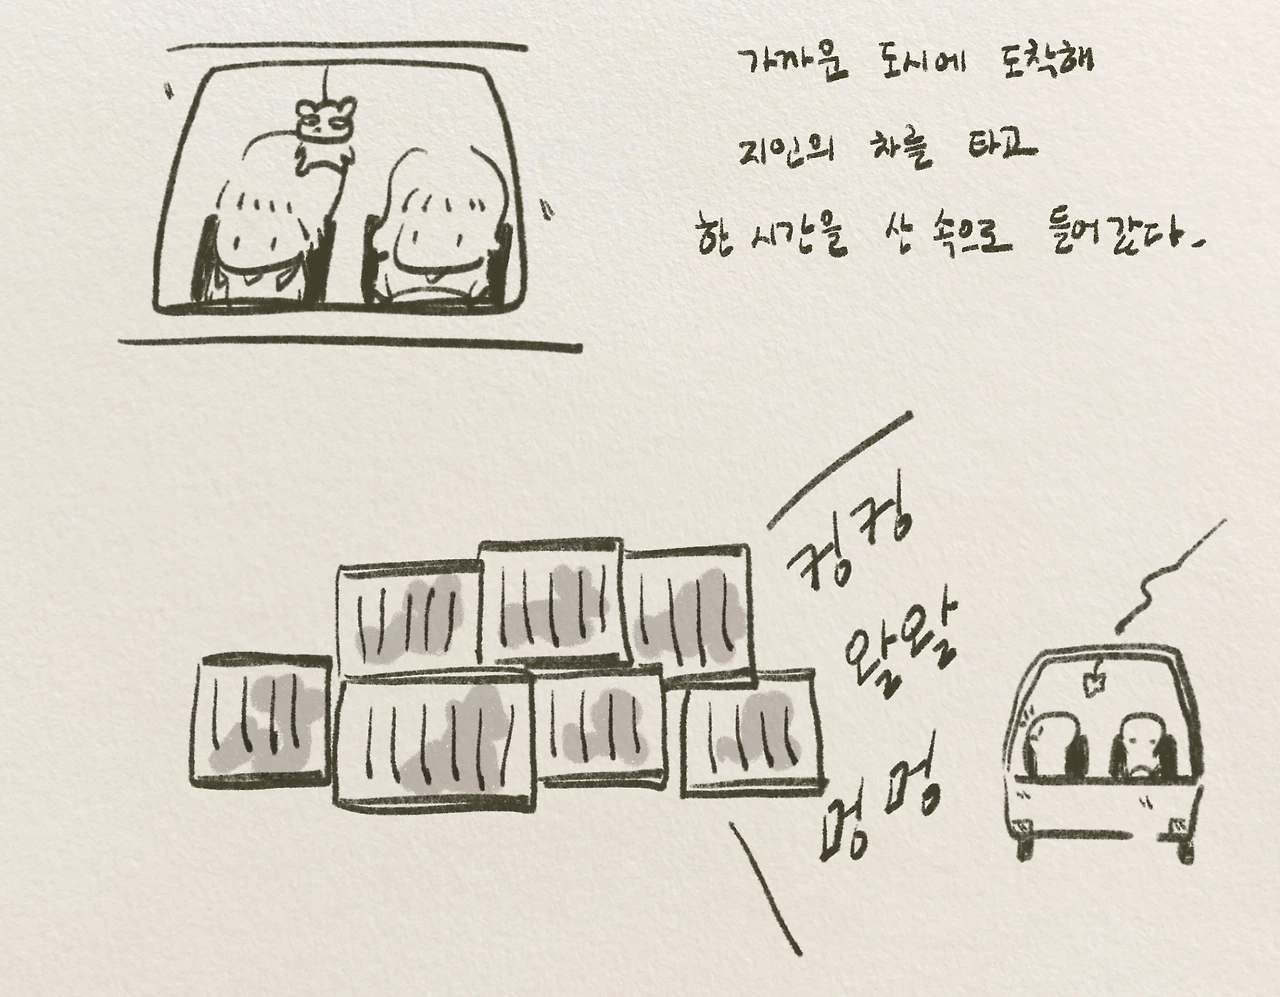 가까운 도시에 도착해
지인의 차를 타고
한 시간을 산 속으로 들어갔다.
컹컹
왈왈
멍멍